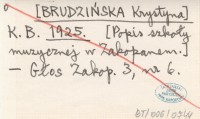 [BRUDZIŃSKA Krystyna]
K. B. 1925. [Popis szkoły
muzycznej w Zakopanem.]
— Głos Zakop. 3, nr 6.